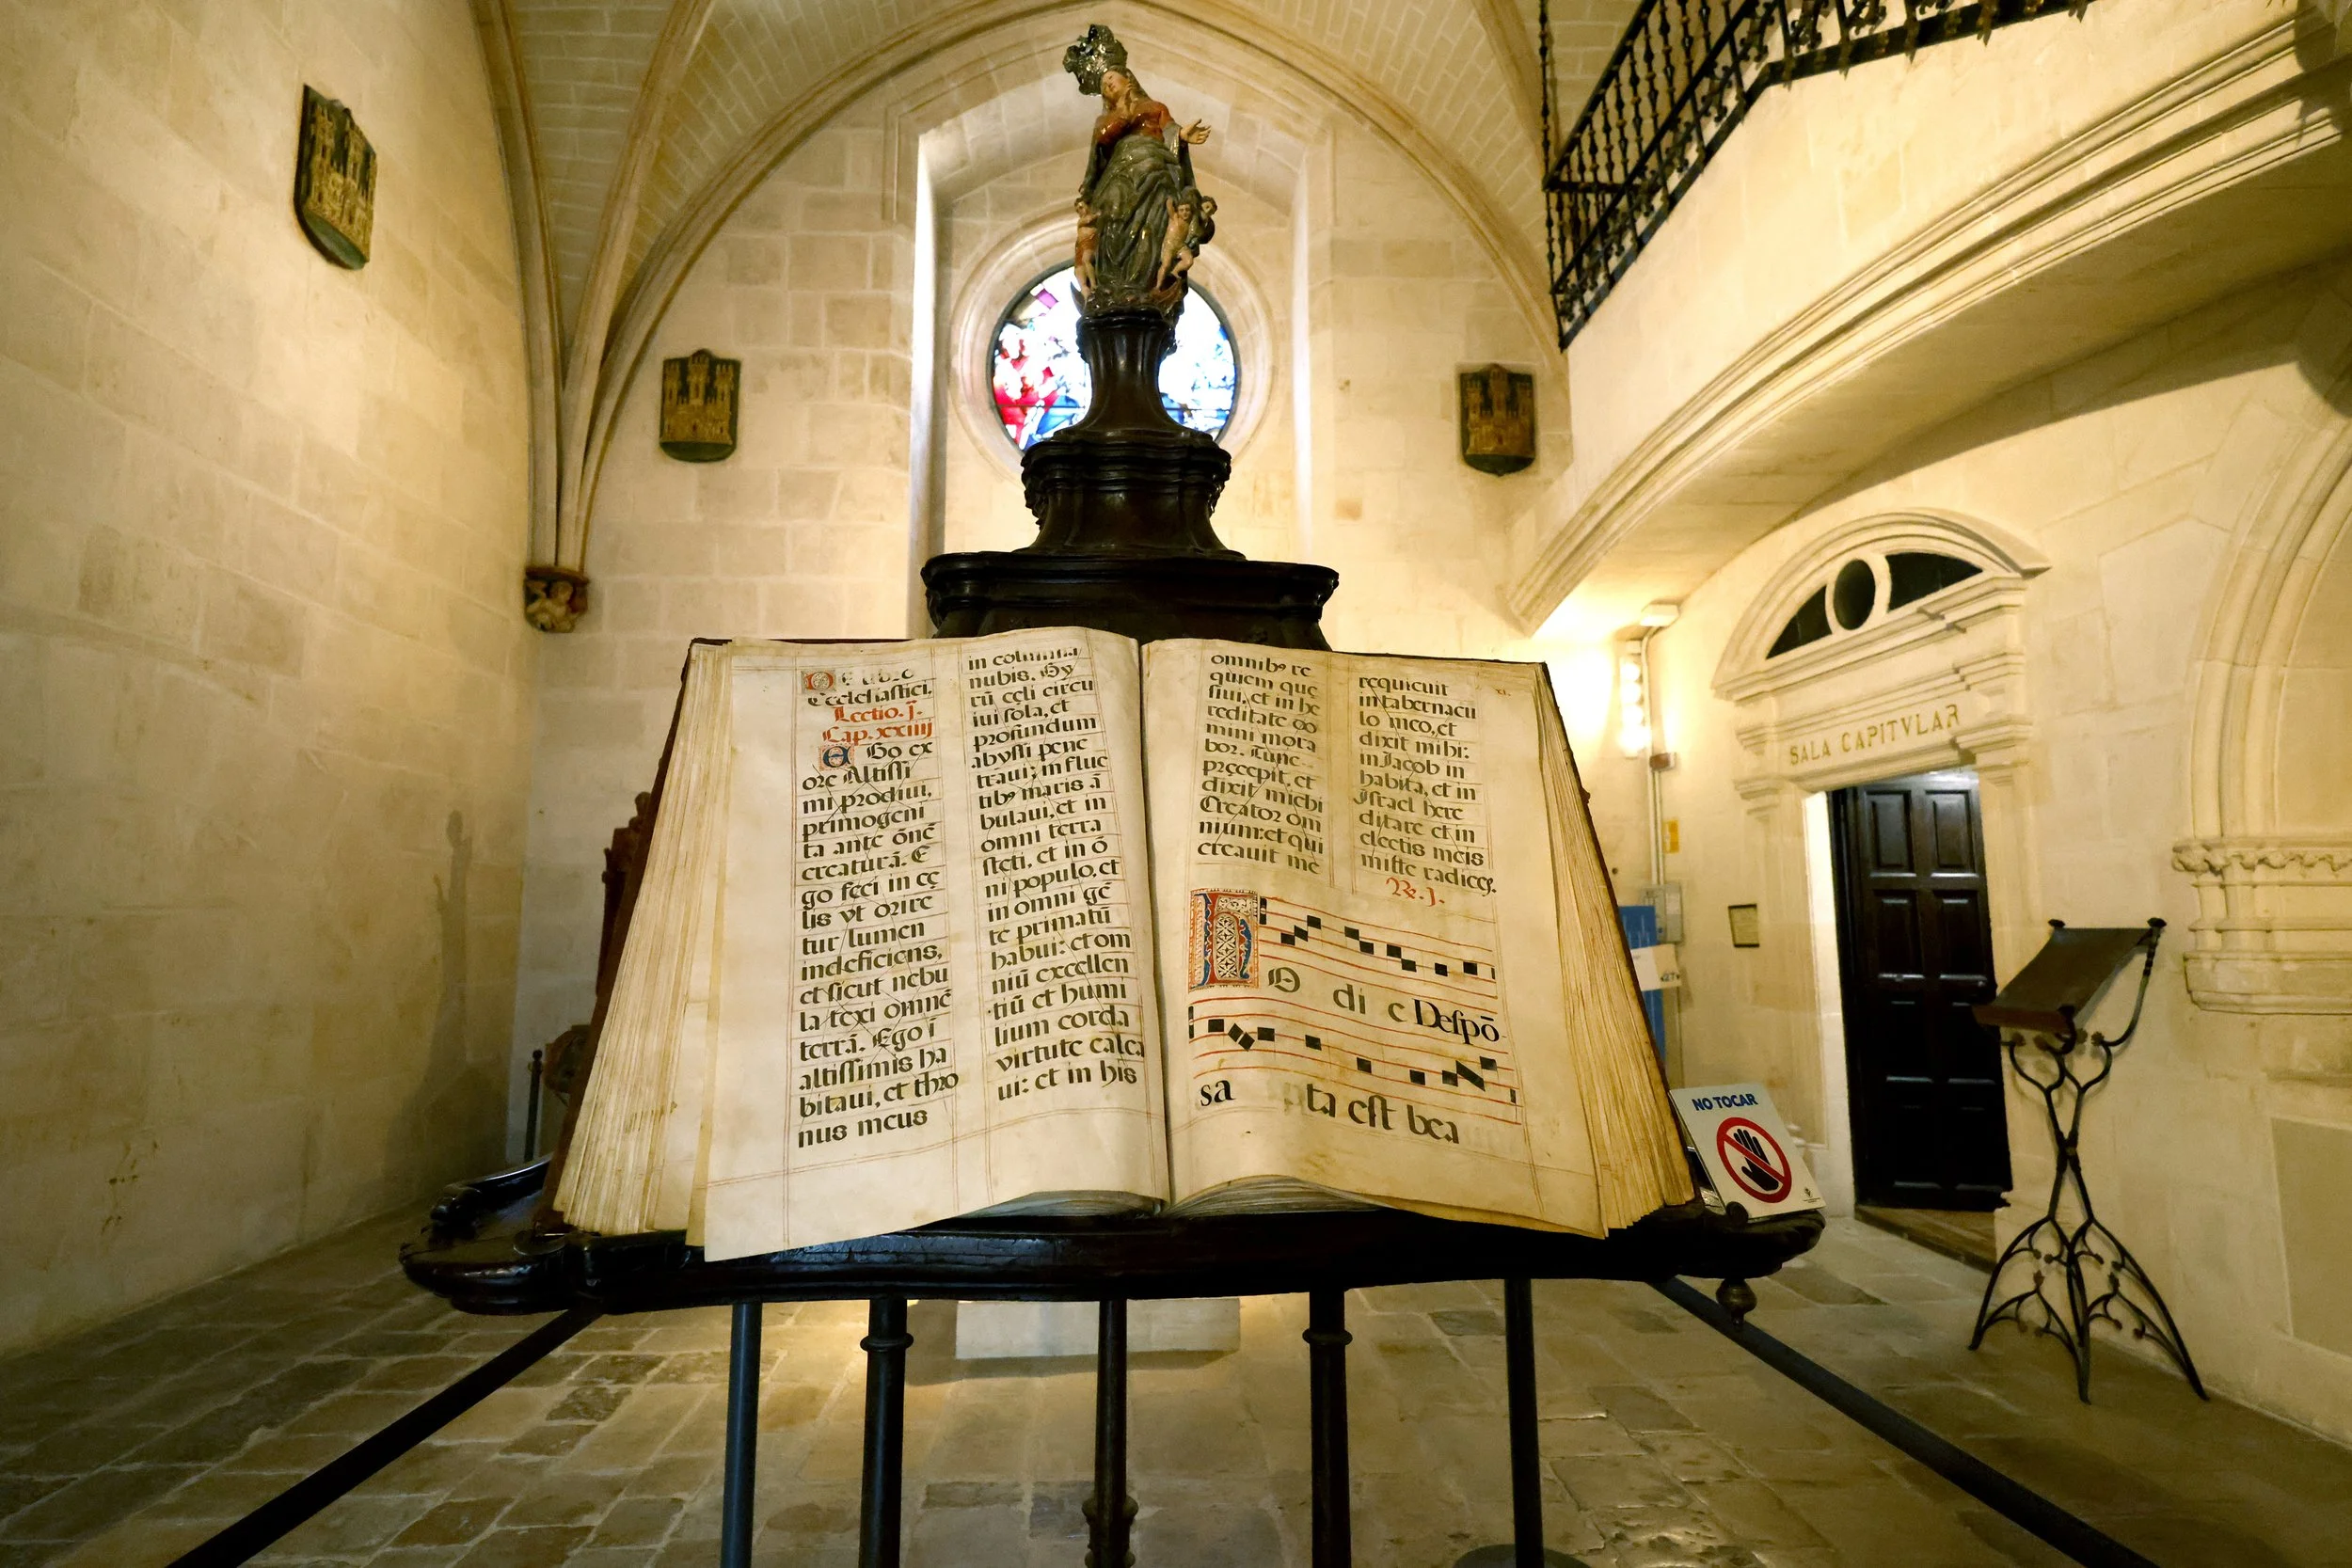 De libro
Ecclesiastici.
Lectio. j.
Cap. xxiiij
Ego ex
ore Altissi
mi prodiui,
primogeni
ta ante õnẽ
creaturã. E
go feci in cę
lis vt orire
tur lumen
indeficiens,
et sicut nebu
la texi omnẽ
terrã. Ego ĩ
altissimis ha
bitaui, et thro
nus meus
in columna
nubis. Gy
rũ cęli circu
iui sola, et
profundum
abyssi pene
traui; in fluc
tibꝰ maris ã
bulaui, et in
omni terra
steti, et in õ
ni populo, et
in omni gẽ
te primatũ
habui: et om
niũ excellen
tiũ et humi
lium corda
virtute calca
ui: et in his
omnibꝰ re
quiem que
siui, et in he
reditate do
mini mora
bor. Tunc
pręcepit, et
dixit michi
Creator om
nium: et qui
creauit me
requieuit
in tabernacu
lo meo, et
dixit mihi:
in Jacob in
habita, et in
Israel here
ditare et in
electis meis
mitte radices.
℞. j.
HO di e Despõ
sa ta est bea
xj.
SALA CAPITVLAR
NO TOCAR